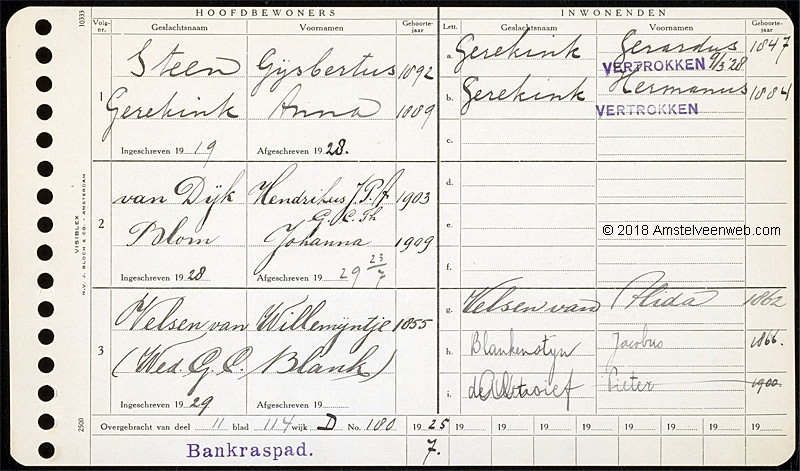 HOOFDBEWONERS
Volg-nr. Geslachtsnaam Voornamen Geboorte-jaar
1 Steen Gijsbertus 1892
Gerekink Anna 1889
Ingeschreven 19 19 Afgeschreven 19 28.
2 van Dijk Hendrikus J.P.
G.C.Th 1903
Blom Johanna 1909
Ingeschreven 19 28 Afgeschreven 19 29 23/7
3 Velsen van Willemijntje 1855
(Wed. G. C. Blank)
Ingeschreven 19 29 Afgeschreven 19
INWONENDEN
Lett. Geslachtsnaam Voornamen Geboorte-jaar
a. Gerekink Gerardus 1847
VERTROKKEN 9/3 '28
b. Gerekink Hermanus 1884
VERTROKKEN
c.
d.
e.
© 2018 Amstelveenweb.com
f.
g. Velsen van Alida 1862
h. Blankenstyn Jacobus 1866.
i. Pieter 1900
Overgebracht van deel 11 blad 114 wijk D No. 180 19 25 19 19 19 19 19 19 19 19
Bankraspad. 7.
10333
VISIBLEX
N.V. J. BLOCH & CO. - AMSTERDAM
2500